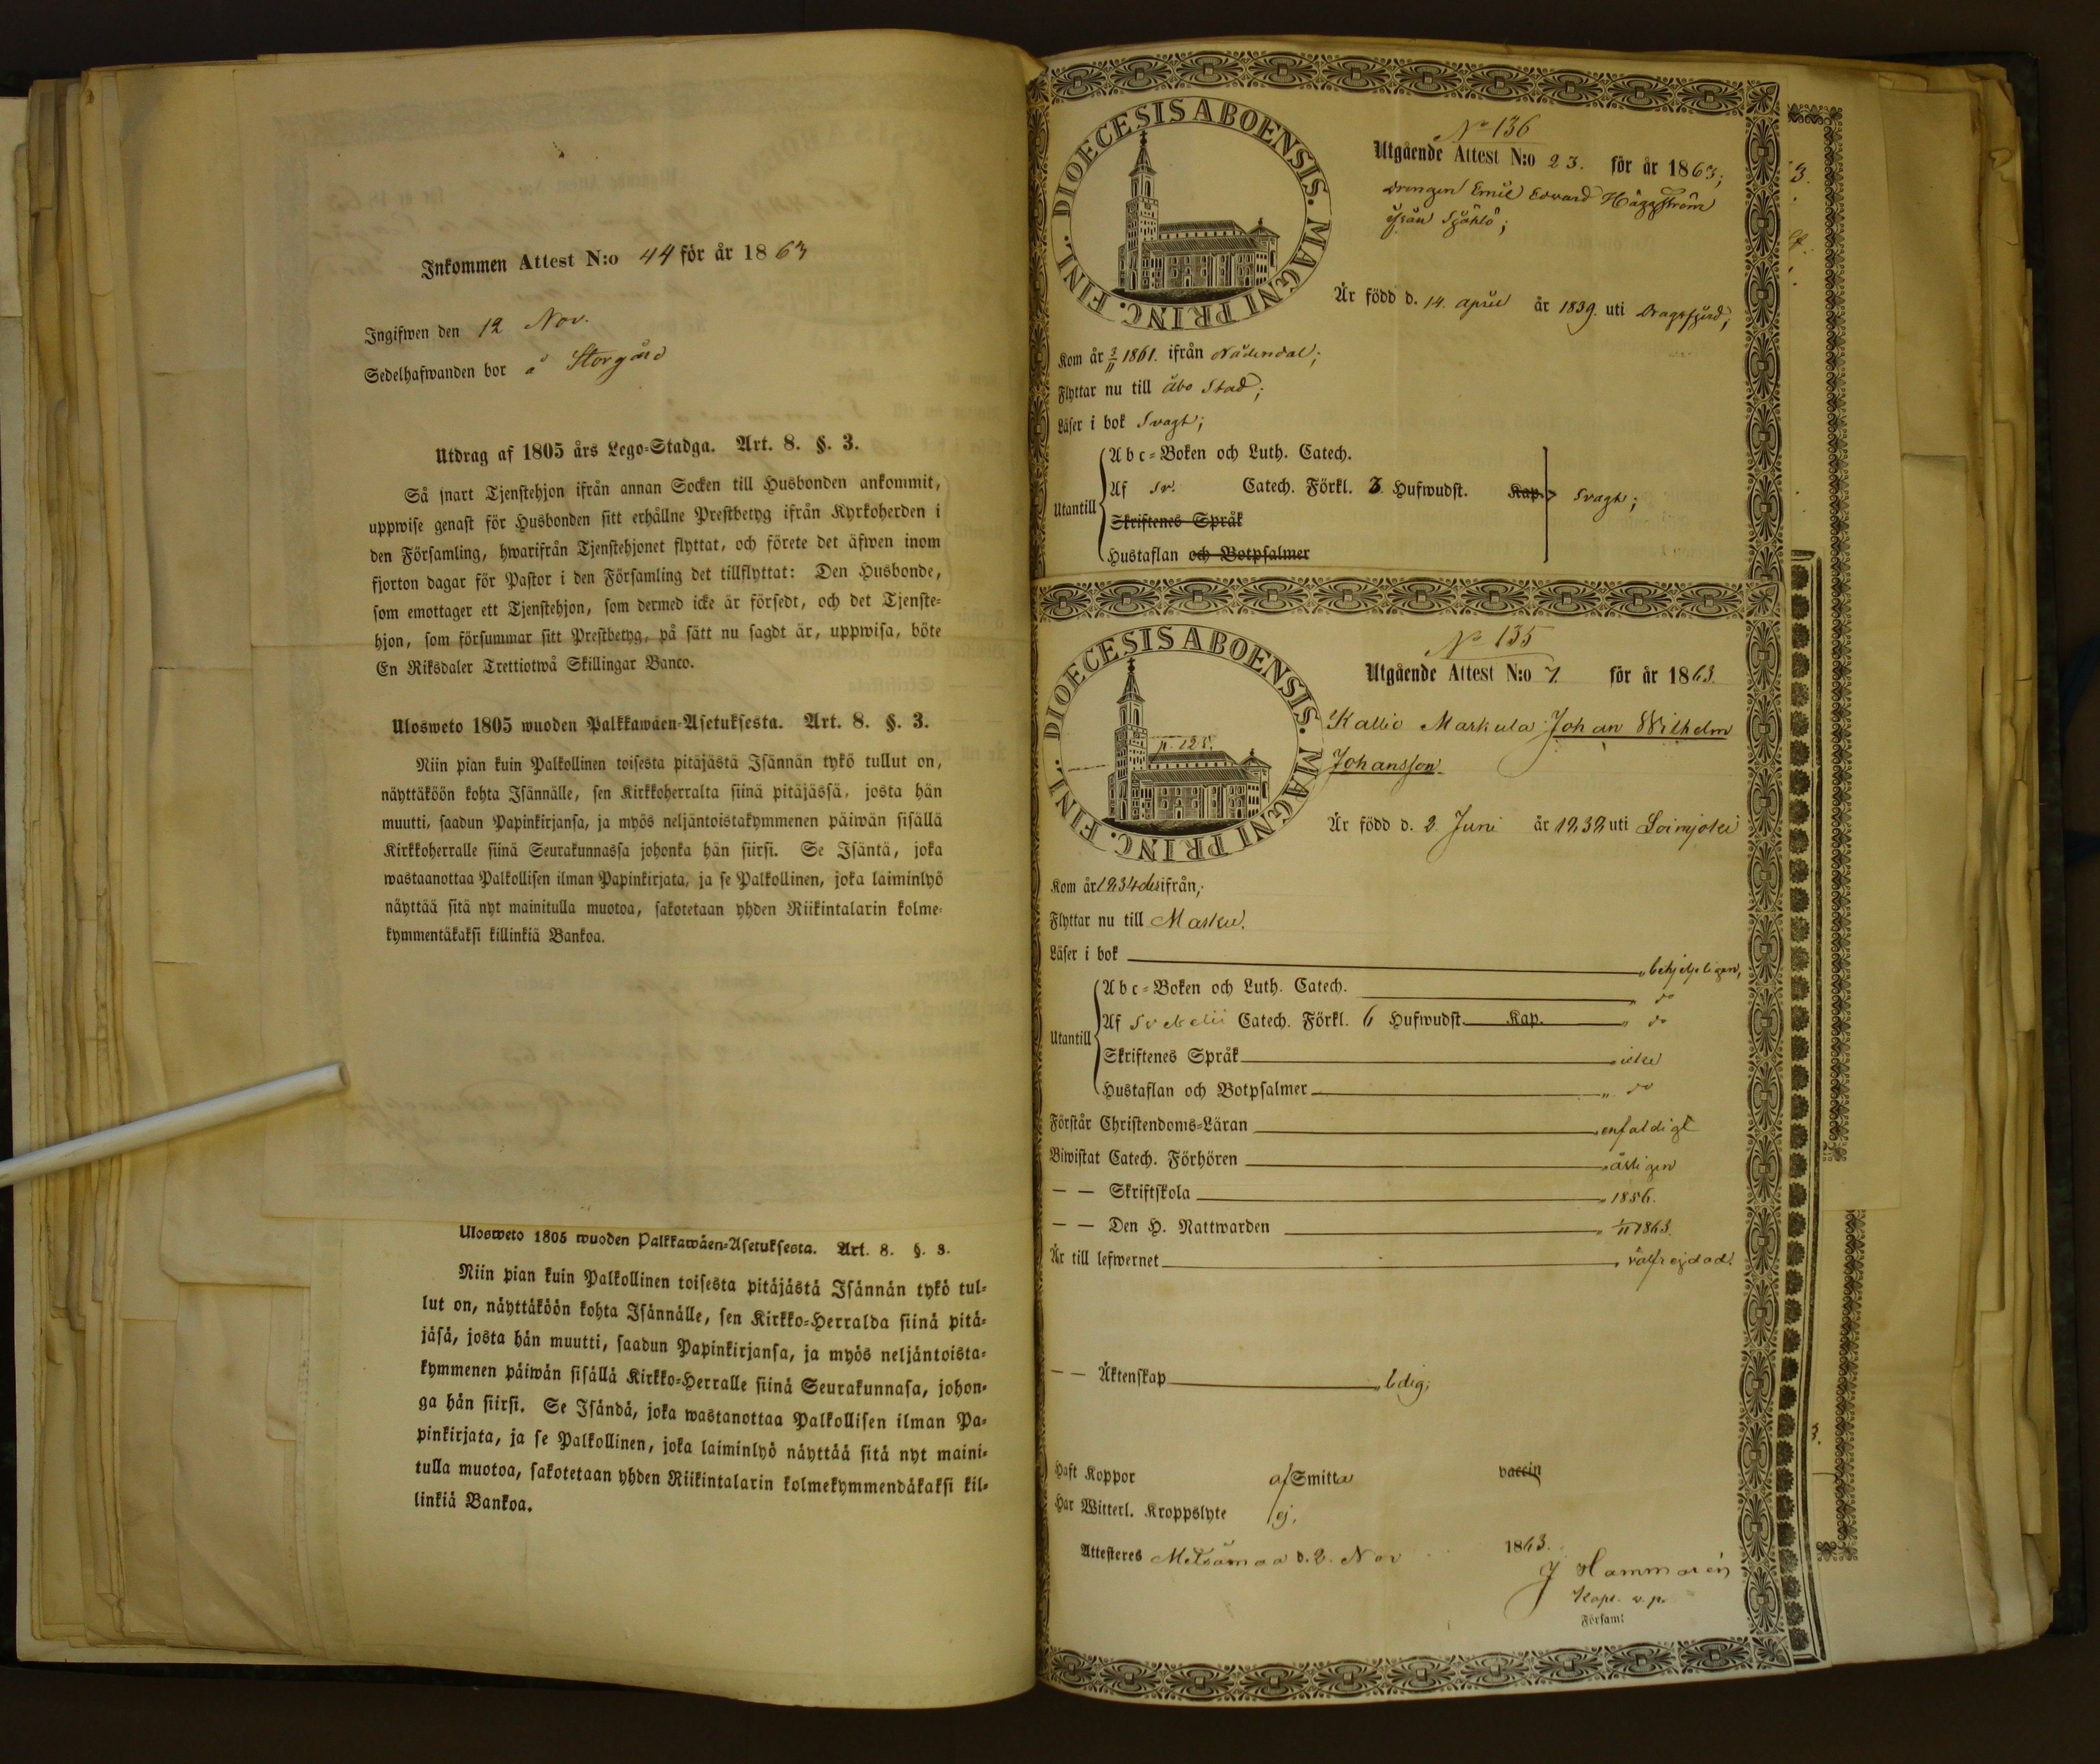 Inkommen Attest N:o 44 för år 1863
Ingifwen den 12 Nov.
Sedelhafwanden bor å Storgård
Utdrag af 1805 års Lego-Stadga. Art. 8. §. 3.
Så snart Tjenstehjon ifrån annan Socken till Husbonden ankommit,
uppwise genast för Husbonden sitt erhållne Prestbetyg ifrån Kyrkoherden i
den Församling, hwarifrån Tjenstehjonet flyttat, och förete det äfwen inom
fjorton dagar för Pastor i den Församling det tillflyttat: Den Husbonde,
som emottager ett Tjenstehjon, som dermed icke är försedt, och det Tjenste-
hjon, som försummar sitt Prestbetyg, på sätt nu sagdt är, uppwisa, böte
En Riksdaler Trettiotwå Skillingar Banco.
Ulosweto 1805 wuoden Palkkawäen-Asetuksesta. Art. 8. §. 3.
Niin pian kuin Palkollinen toisesta pitäjästä Isännän tykö tullut on,
näyttäköön kohta Isännälle, sen Kirkkoherralta siinä pitäjässä, josta hän
muutti, saadun Papinkirjansa, ja myös neljäntoistakymmenen päiwän sisällä
Kirkkoherralle siinä Seurakunnassa johonka hän siirsi. Se Isäntä, joka
wastaanottaa Palkollisen ilman Papinkirjata, ja se Palkollinen, joka laiminlyö
näyttää sitä nyt mainitulla muotoa, sakotetaan yhden Riikintalarin kolme-
kymmentäkaksi killinkiä Bankoa.
Ulosweto 1805 wuoden Palkkawäen-Asetuksesta. Art. 8. §. 3.
Niin pian kuin Palkollinen toisesta pitäjästä Isännän tykö tul-
lut on, näyttäköön kohta Isännälle, sen Kirkko-Herralda siinä pitä-
jäsä, josta hän muutti, saadun Papinkirjansa, ja myös neljäntoista-
kymmenen päiwän sisällä Kirkko-Herralle siinä Seurakunnasa, johon-
ga hän siirsi. Se Isändä, joka wastanottaa Palkollisen ilman Pa-
pinkirjata, ja se Palkollinen, joka laiminlyö näyttää sitä nyt maini-
tulla muotoa, sakotetaan yhden Riikintalarin kolmekymmendäkaksi kil-
linkiä Bankoa.
DIOECESIS ABOENSIS. MAGNI PRINC. FINL.
No 136
Utgående Attest N:o 23. för år 1863;
drengen Emil Edvard Häggström
ifrån Själö;
Är född d. 14. April år 1839. uti Dragsfjerd;
Kom år 3/11 1861. ifrån Nådendal;
Flyttar nu till Åbo Stad;
Läser i bok Svagt;
Utantill
Abc-Boken och Luth. Catech.
Af Sv. Catech. Förkl. 3. Hufwudst. Kap. Svagt;
Skriftenes Språk
Hustaflan och Botpsalmer
DIOECESIS ABOENSIS. MAGNI PRINC. FINL.
No 135
Utgående Attest N:o 7. för år 1863.
p. 125.
Kallio Markula Johan Wilhelm
Johansson
Är född d. 2. Juni år 1832 uti Loimjoki
Kom år 1834 ifrån,
Flyttar nu till Masku.
Läser i bok behjelpligen,
Utantill
Abc-Boken och Luth. Catech. do
Af Svebelii Catech. Förkl. 6 Hufwudst. Kap. do
Skriftenes Språk icke
Hustaflan och Botpsalmer do
Förstår Christendoms-Läran enfaldigt
Biwistat Catech. Förhören årligen
— — Skriftskola 1856.
— — Den H. Nattwarden 1/11 1863.
Är till lefwernet välfrejdad.
— — Äktenskap ledig;
Haft Koppor af Smitta vaccin
Har Witterl. Kroppslyte ej.
Attesteres Metsämaa d. 2. Nov 1863.
J Hammarén
Kapl. v. p.
Församl